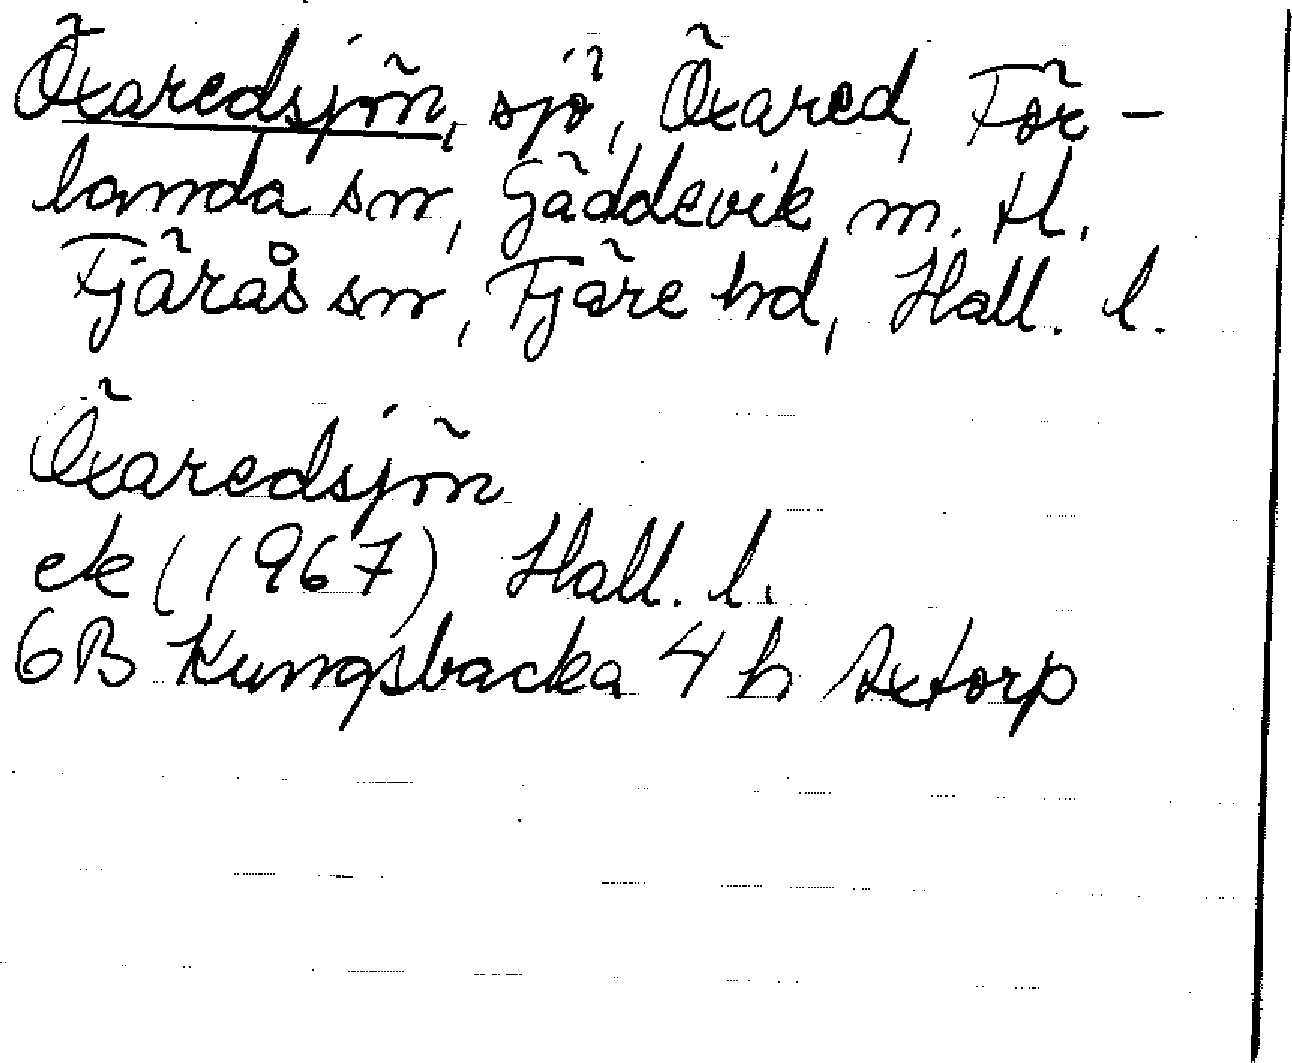 Öxaredsjön, sjö, Öxared, För-
landa sn, Gäddevik m. fl.
Fjärås sn, Fjäre hd, Hall. l.
Öxaredsjön
ek (1967) Hall. l.
6B Kungsbacka 4 h Axtorp